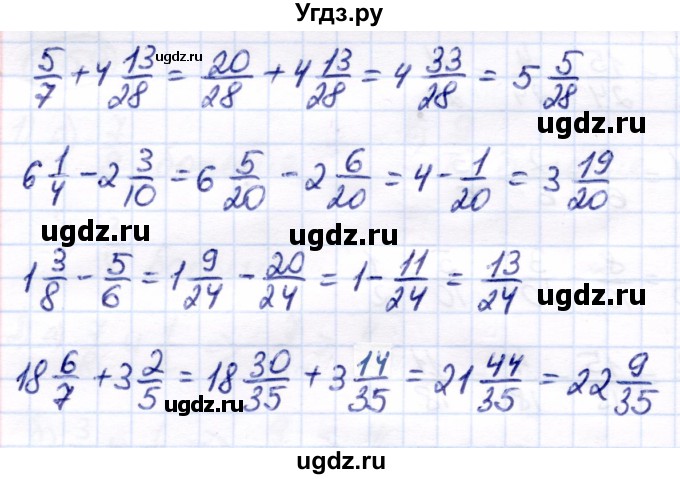 Угдз.ру
5/7 + 4 13/28 = 20/28 + 4 13/28 = 4 33/28 = 5 5/28
ugdz.ru
ugdz.ru
ugdz.ru
6 1/4 - 2 3/10 = 6 5/20 - 2 6/20 = 4 - 1/20 = 3 19/20
ugdz.ru
ugdz.ru
1 3/8 - 5/6 = 1 9/24 - 20/24 = 1 - 11/24 = 13/24
ugdz.ru
18 6/7 + 3 2/5 = 18 30/35 + 3 14/35 = 21 44/35 = 22 9/35
ugdz.ru
ugdz.ru
ugdz.ru